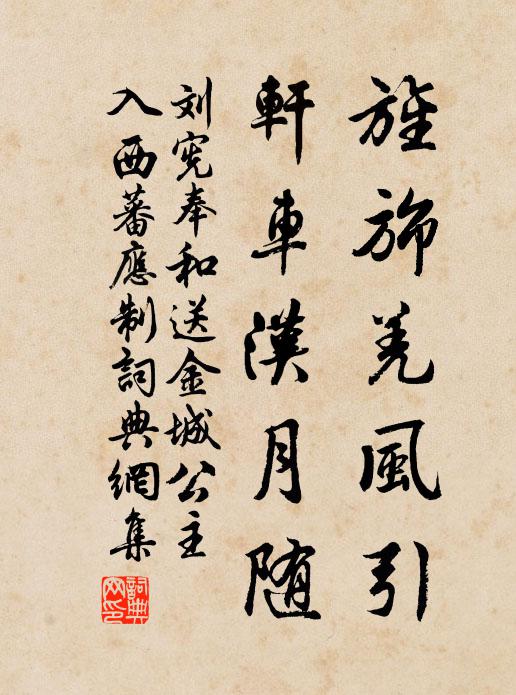 旌旆羌風引
軒車漢月随
刘宪奉和送金城公主
入西蕃應制詞典網集
詞典
网印